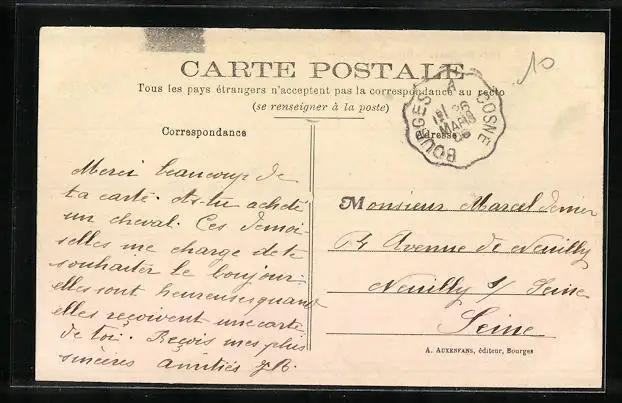 10
CARTE POSTALE
Tous les pays étrangers n'acceptent pas la correspondance au recto
(se renseigner à la poste)
BOURGES A COSNE
26
MARS
Correspondance
Adresse
Merci beaucoup de
ta carte. As-tu acheté
un cheval. Ces demoi
selles me charge de te
souhaiter le bonjour.
elles sont heureuses quand
elles reçoivent une carte
de toi. Reçois mes plus
sincères amitiés
Monsieur Marcel
Avenue de Neuilly
Neuilly s/ Seine
Seine
A. AUXENFANS, éditeur, Bourges